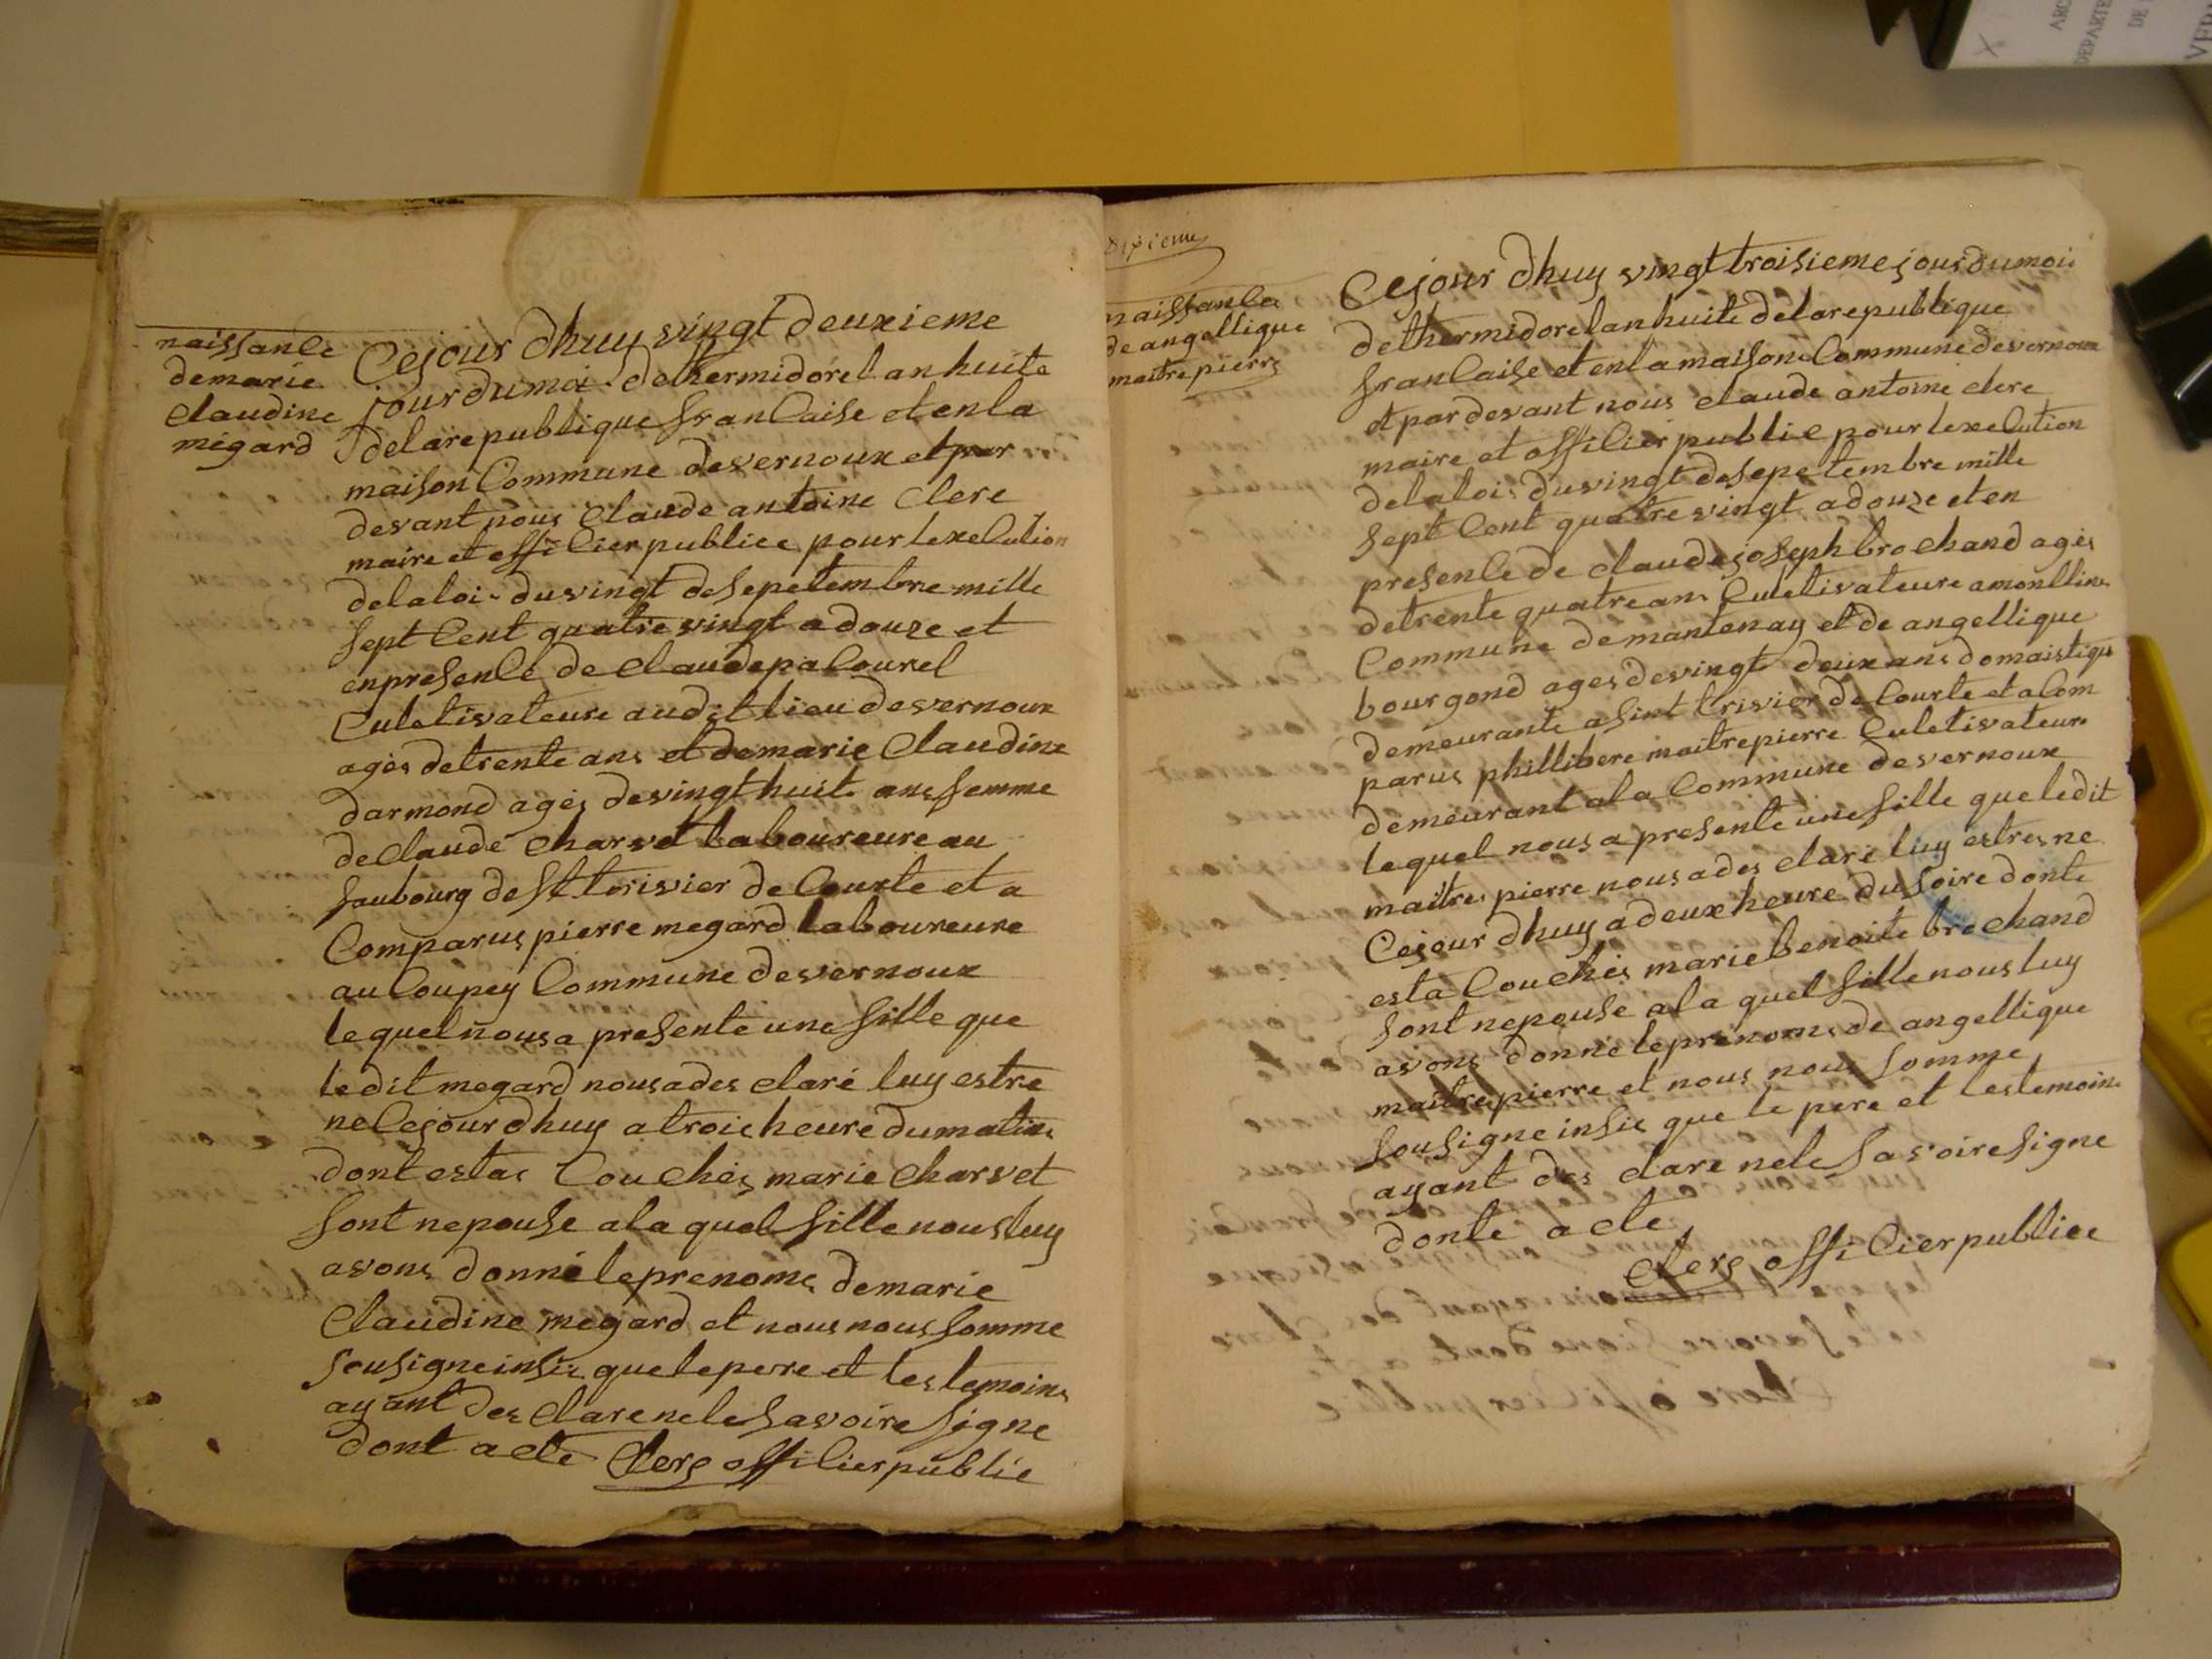 naissance
demarie
claudine
mégard
Cejour dhuy vingt deuxieme
jour dumoi dethermidorel an huite
delarepublique francaise et enla
maison Commune devernoux etpar
devant nous Claude antoine Clere
maire et officier publice pour lexecution
delaloi duvingt desepetembre mille
sept Cent quatre vingt adouze et
enpresence de Claudepacourel
Culetivateure audit lieu devernoux
agés detrente ans et demarie Claudine
darmond agés devingt huite ans femme
declaude Charvet laboureure au
faubourg de St trivier de Courte et a
Comparus pierre megard laboureure
au Coupey Commune devernoux
lequel nous a presenté une fille que
ledit megard nousades claré luy estre
ne Cejour dhuy a trois heure dumatin
dont estac Couchés marie Charvet
sont nepouse ala quel fille nous luy
avons donné leprenoms demarie
Claudine megard et nous nous somme
sousigneinsie que lepere et les temoins
ayant des Clarenele Savoire signe
dont acte Clere officier publie
dixieme
naissance
de angellique
maitrepierre
Cejour dhuy vingt troisieme jour dumois
dethermidorelanhuite delarepublique
francaise et enla maison Commune devernoux
et pardevant nous claude antoine clere
maire et officier publie pour lexecution
delaloi duvingt desepetembre mille
sept Cent quatre vingt adouze et en
presence de claude joseph brochand agés
detrente quatre ans Culetivateure amonllin
Commune demantenay et de angellique
bourgond ages devingt deux ans domaistique
demeurante asint trivier de Courte et acom
parus phillibere maitrepierre Culetivateure
demeurant ala Commune devernoux
lequel nous a presenté une fille queledit
maitre pierre nous ades claré luy estres ne
Cejour dhuy adeux heure du soire donte
esta Couchés marie benoite brochand
sont nepouse ala quel fille nous luy
avons donné leprenoms de angellique
maitrepierre et nous nous somme
sousigne insie que le pere et les temoin
ayant des clare nele savoire signe
donte acte
Clere officier publiee